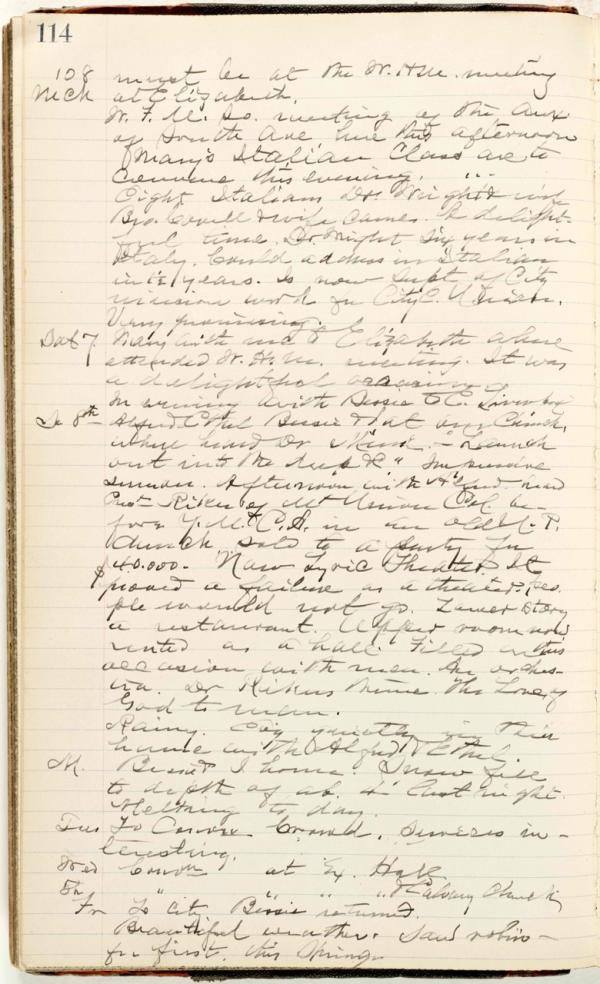 114
108 must be at the W. H.M. meeting
Mch at Elizabeth.
W. F. M. So. meeting of the Aux
of South Ave here this afternoon
Mary's Italian Class are to
convene this evening.
Eight Italians Dr. Wright & wife
Bro. Covell & wife came. A delight-
ful time. Dr. Wright six years in
Italy. Could address in Italian
in 1½ years. Is now Supt of City
mission work for City C. Union.
Very promising.
Sat 7 Mary with me to Elizabeth where
attended W. H. M. meeting. It was
a delightful occasion.
In evening with Bessie to E.
S 8th Alfred Ethel Bessie & I at our Church,
where heard Dr. "Launch
out into the deep &c" Impressive
sermon. Afternoon with Alfred heard
Prest Riker of Mt Union Col. be-
fore Y.M.C.A. in an old
church sold to a party for
$40.000. Now Lyric Theater. It
proved a failure as a theater. Peo-
ple would not go. Lower story
a restaurant. Upper room now
rented as a hall. Filled on this
occasion with men. An orches-
tra. Dr Rikers theme The Love of
God to men.
Rainy. quietly in their
home with Alfred & Ethel.
M. Bessie & I home. Snow fell
to depth of ab. 4" last night.
Melting to day.
Tues To Convo. Crowd. Services in-
teresting.
Wed Convo at Ex. Hall
Th " " " Calvary Church
Fr To City Bessie returned.
Beautiful weather. Saw robin
for first, this Spring.